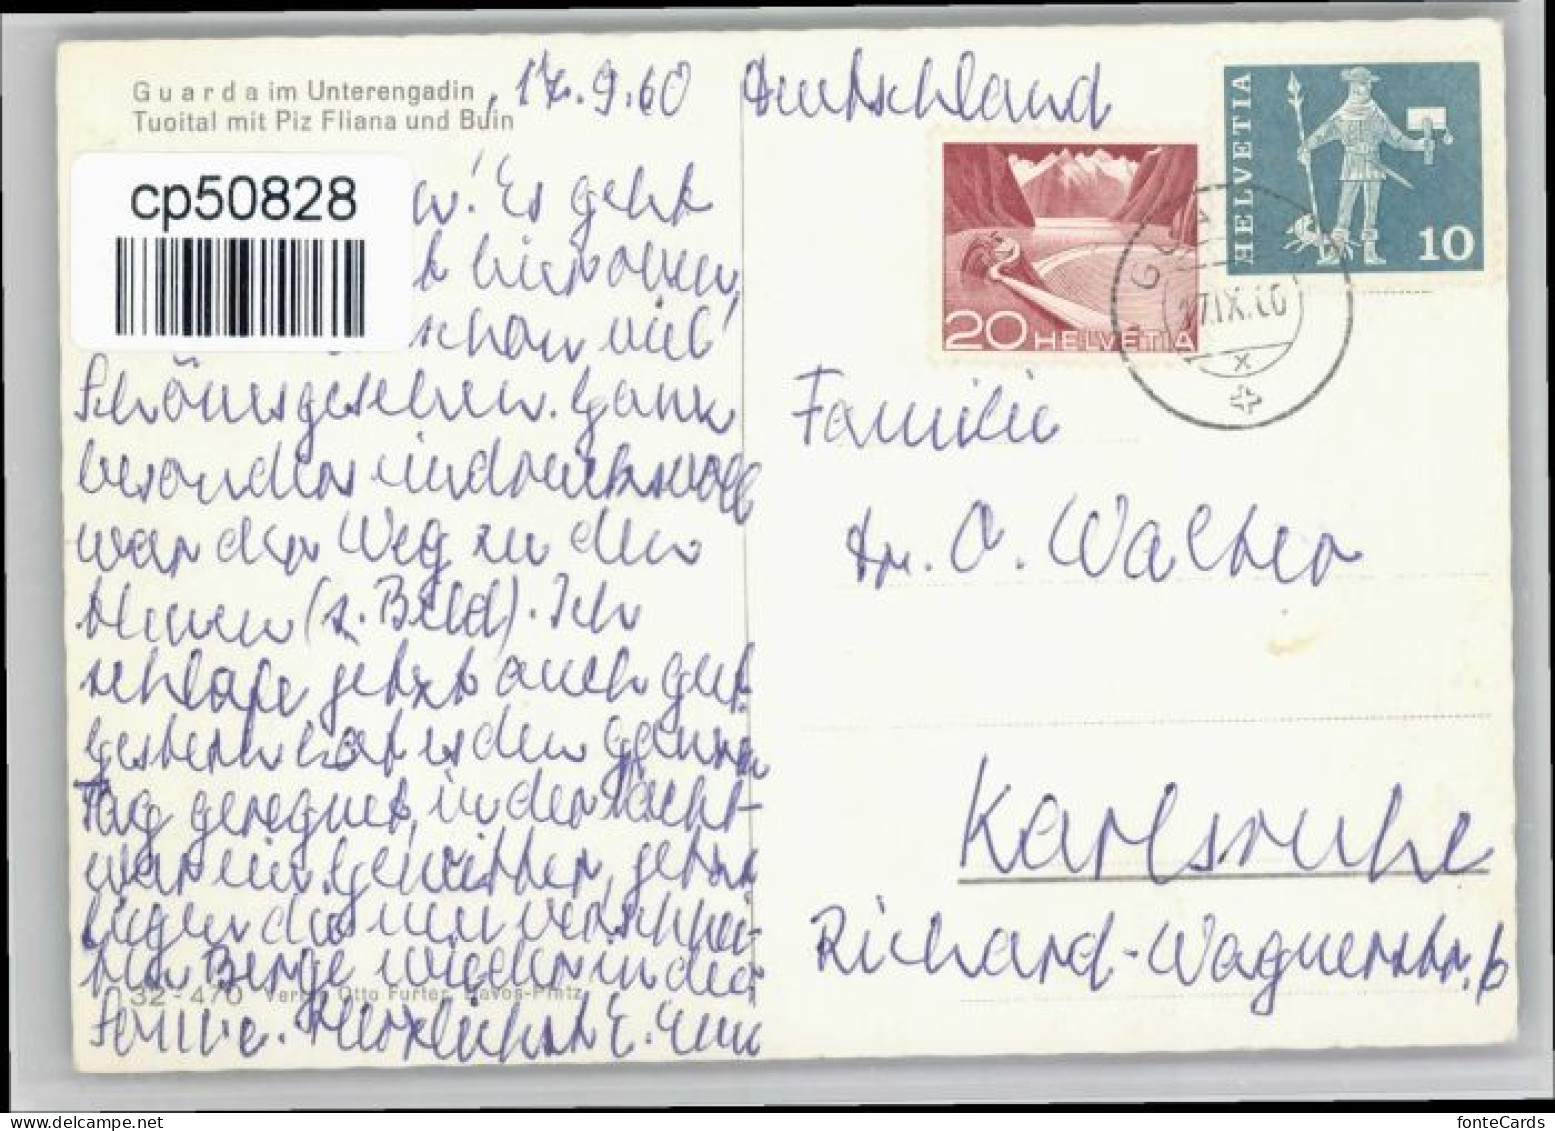 Guarda im Unterengadin
Tuoital mit Piz Fliana und Buin
17.9.60
cp50828
! Es geht
hier oben,
schon viel
Schönes gesehen. Ganz
besonders eindrucksvoll
war der Weg zu den
(s. Bild). Ich
schlafe jetzt auch gut.
Gestern hat es den ganzen
Tag geregnet, in der Nacht
war ein Gewitter, jetzt
liegen die neu verschnei-
ten Berge wieder in der
32-470 Verlag Otto Furter, Davos-Platz
Sonne. Herzlichst E.
Deutschland
HELVETIA
10
20 HELVETIA
GUARDA
17.IX.60
X
Familie
Dr. O. Walter
Karlsruhe
Richard-Wagnerstr. 6
fonteCards